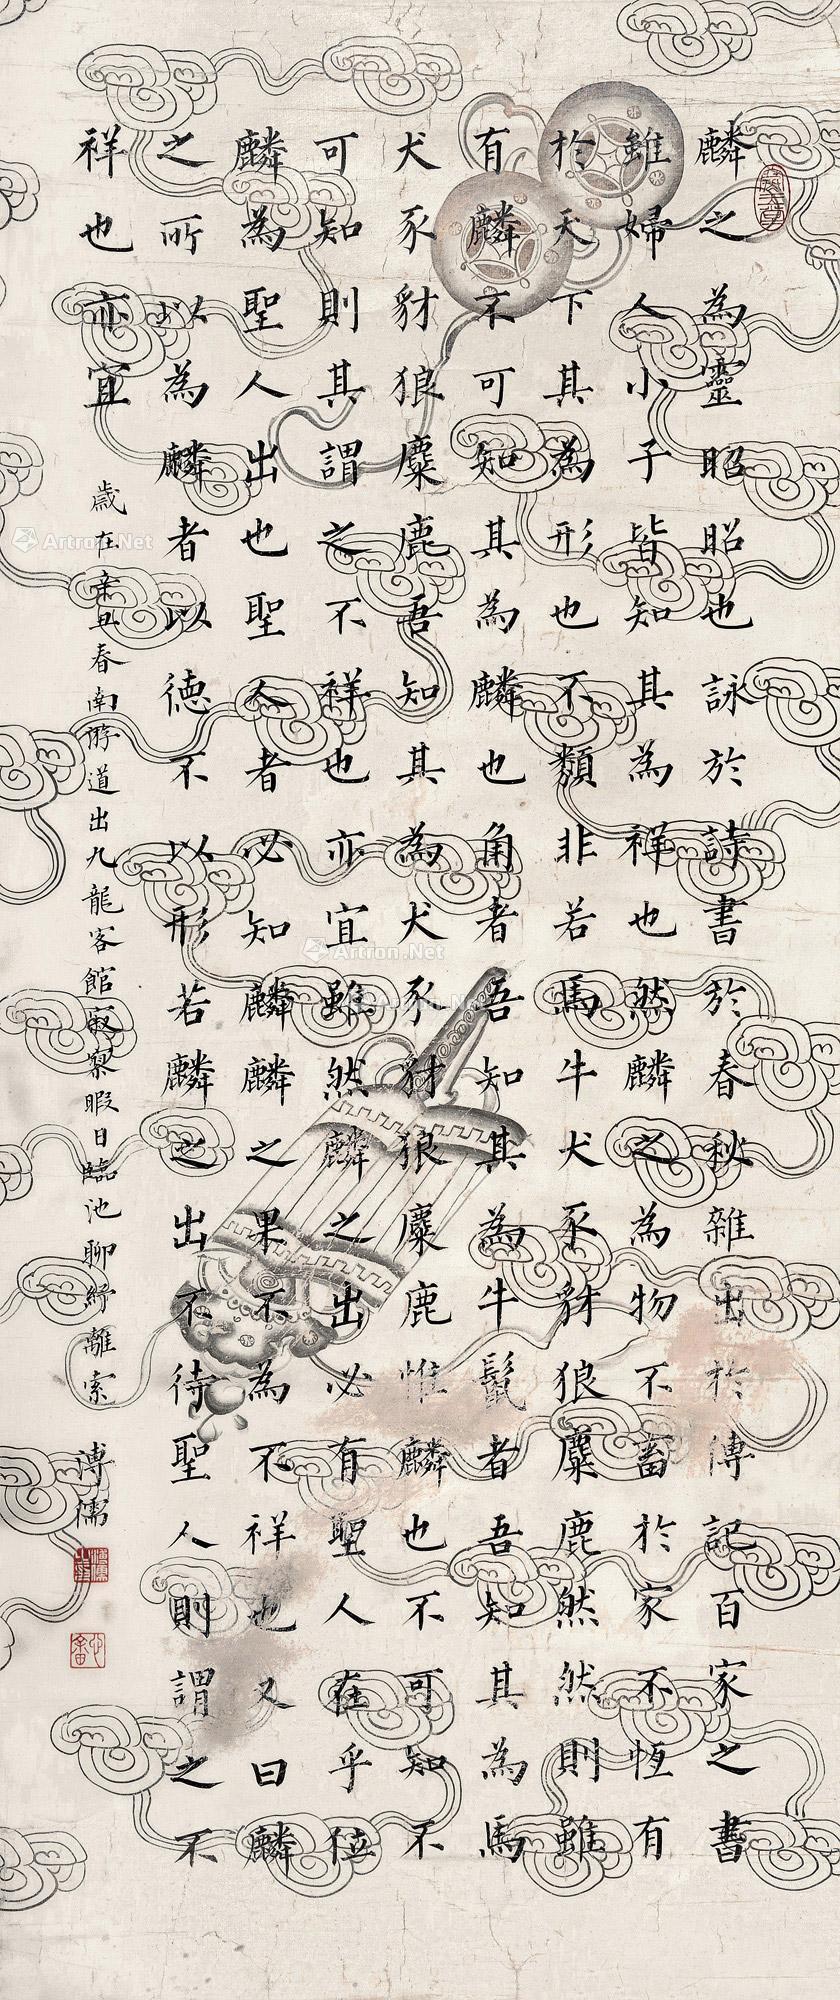 麟之為靈昭昭也詠於詩書於春秋雜出於傳記百家之書
雖婦人小子皆知其為祥也然麟之為物不畜於家不恆有
於天下其為形也不類非若馬牛犬豕豺狼麋鹿然然則雖
有麟不可知其為麟也角者吾知其為牛鬣者吾知其為馬
犬豕豺狼麋鹿吾知其為犬豕豺狼麋鹿惟麟也不可知不
可知則其謂之不祥也亦宜雖然麟之出必有聖人在乎位
麟為聖人出也聖人者必知麟麟之果不為不祥也又曰麟
之所以為麟者以德不以形若麟之出不待聖人則謂之不
祥也亦宜
歲在辛丑春南游道出九龍客館寂寥暇日臨池聊紓離索 溥儒
Artron.Net
Artron.Net
Artron.Net